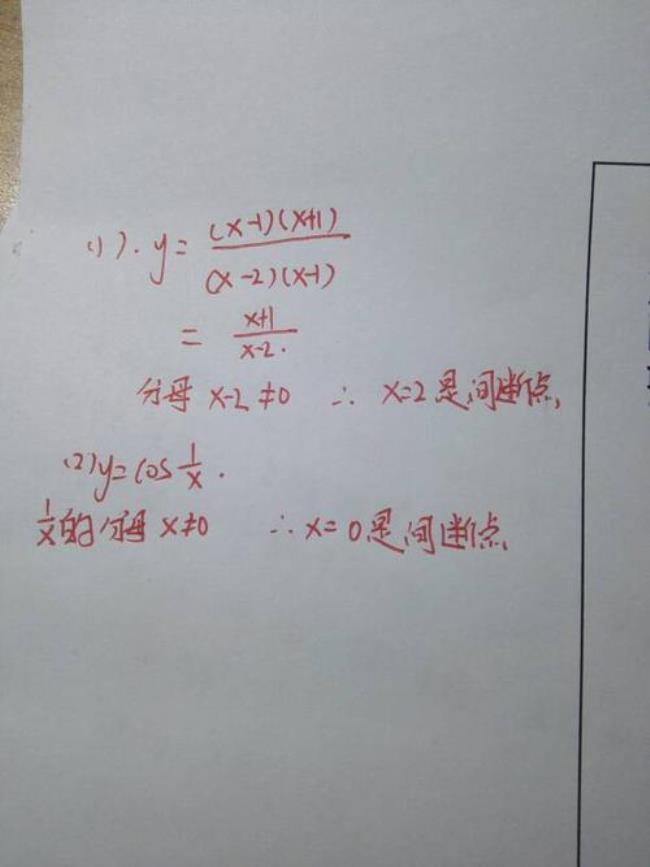 (1). y= (x-1)(x+1) / (x-2)(x-1)
= x+1 / x-2.
分母 x-2≠0 ∴ x=2是间断点,
(2) y=cos 1/x.
1/x的分母 x≠0 ∴ x=0是间断点,